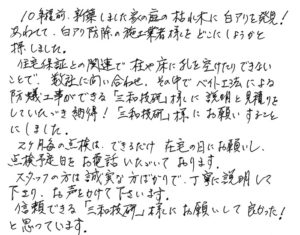 10年程前、新築しました家の庭の枯れ木に白アリを発見!
あわてて、白アリ防除の施工業者様をどこにしようかと
探しました。
住宅保証との関連で柱や床に孔を空けたりできない
ことで、数社に問い合わせ、その中でベイト工法による
防蟻工事ができる「三和技研」様に説明と見積りを
していただき納得!「三和技研」様にお願いすること
にしました。
2ヶ月毎の点検は、できるだけ在宅の日にお願いし、
点検予定日をお電話いただいております。
スタッフの方は誠実な方ばかりで、丁寧に説明して
下さり、お声をかけて下さいます。
信頼できる「三和技研」様にお願いして良かった!
と思っています。